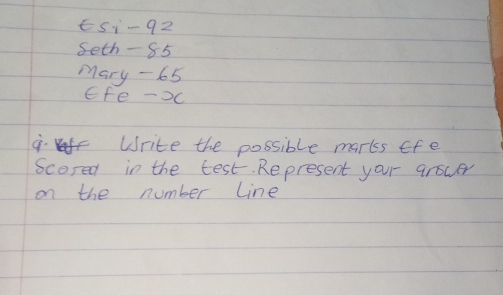 Esi - 92
Seth - 85
Mary - 65
Efe - x
a. Write the possible marks Efe
Scored in the test. Represent your answer
on the number line